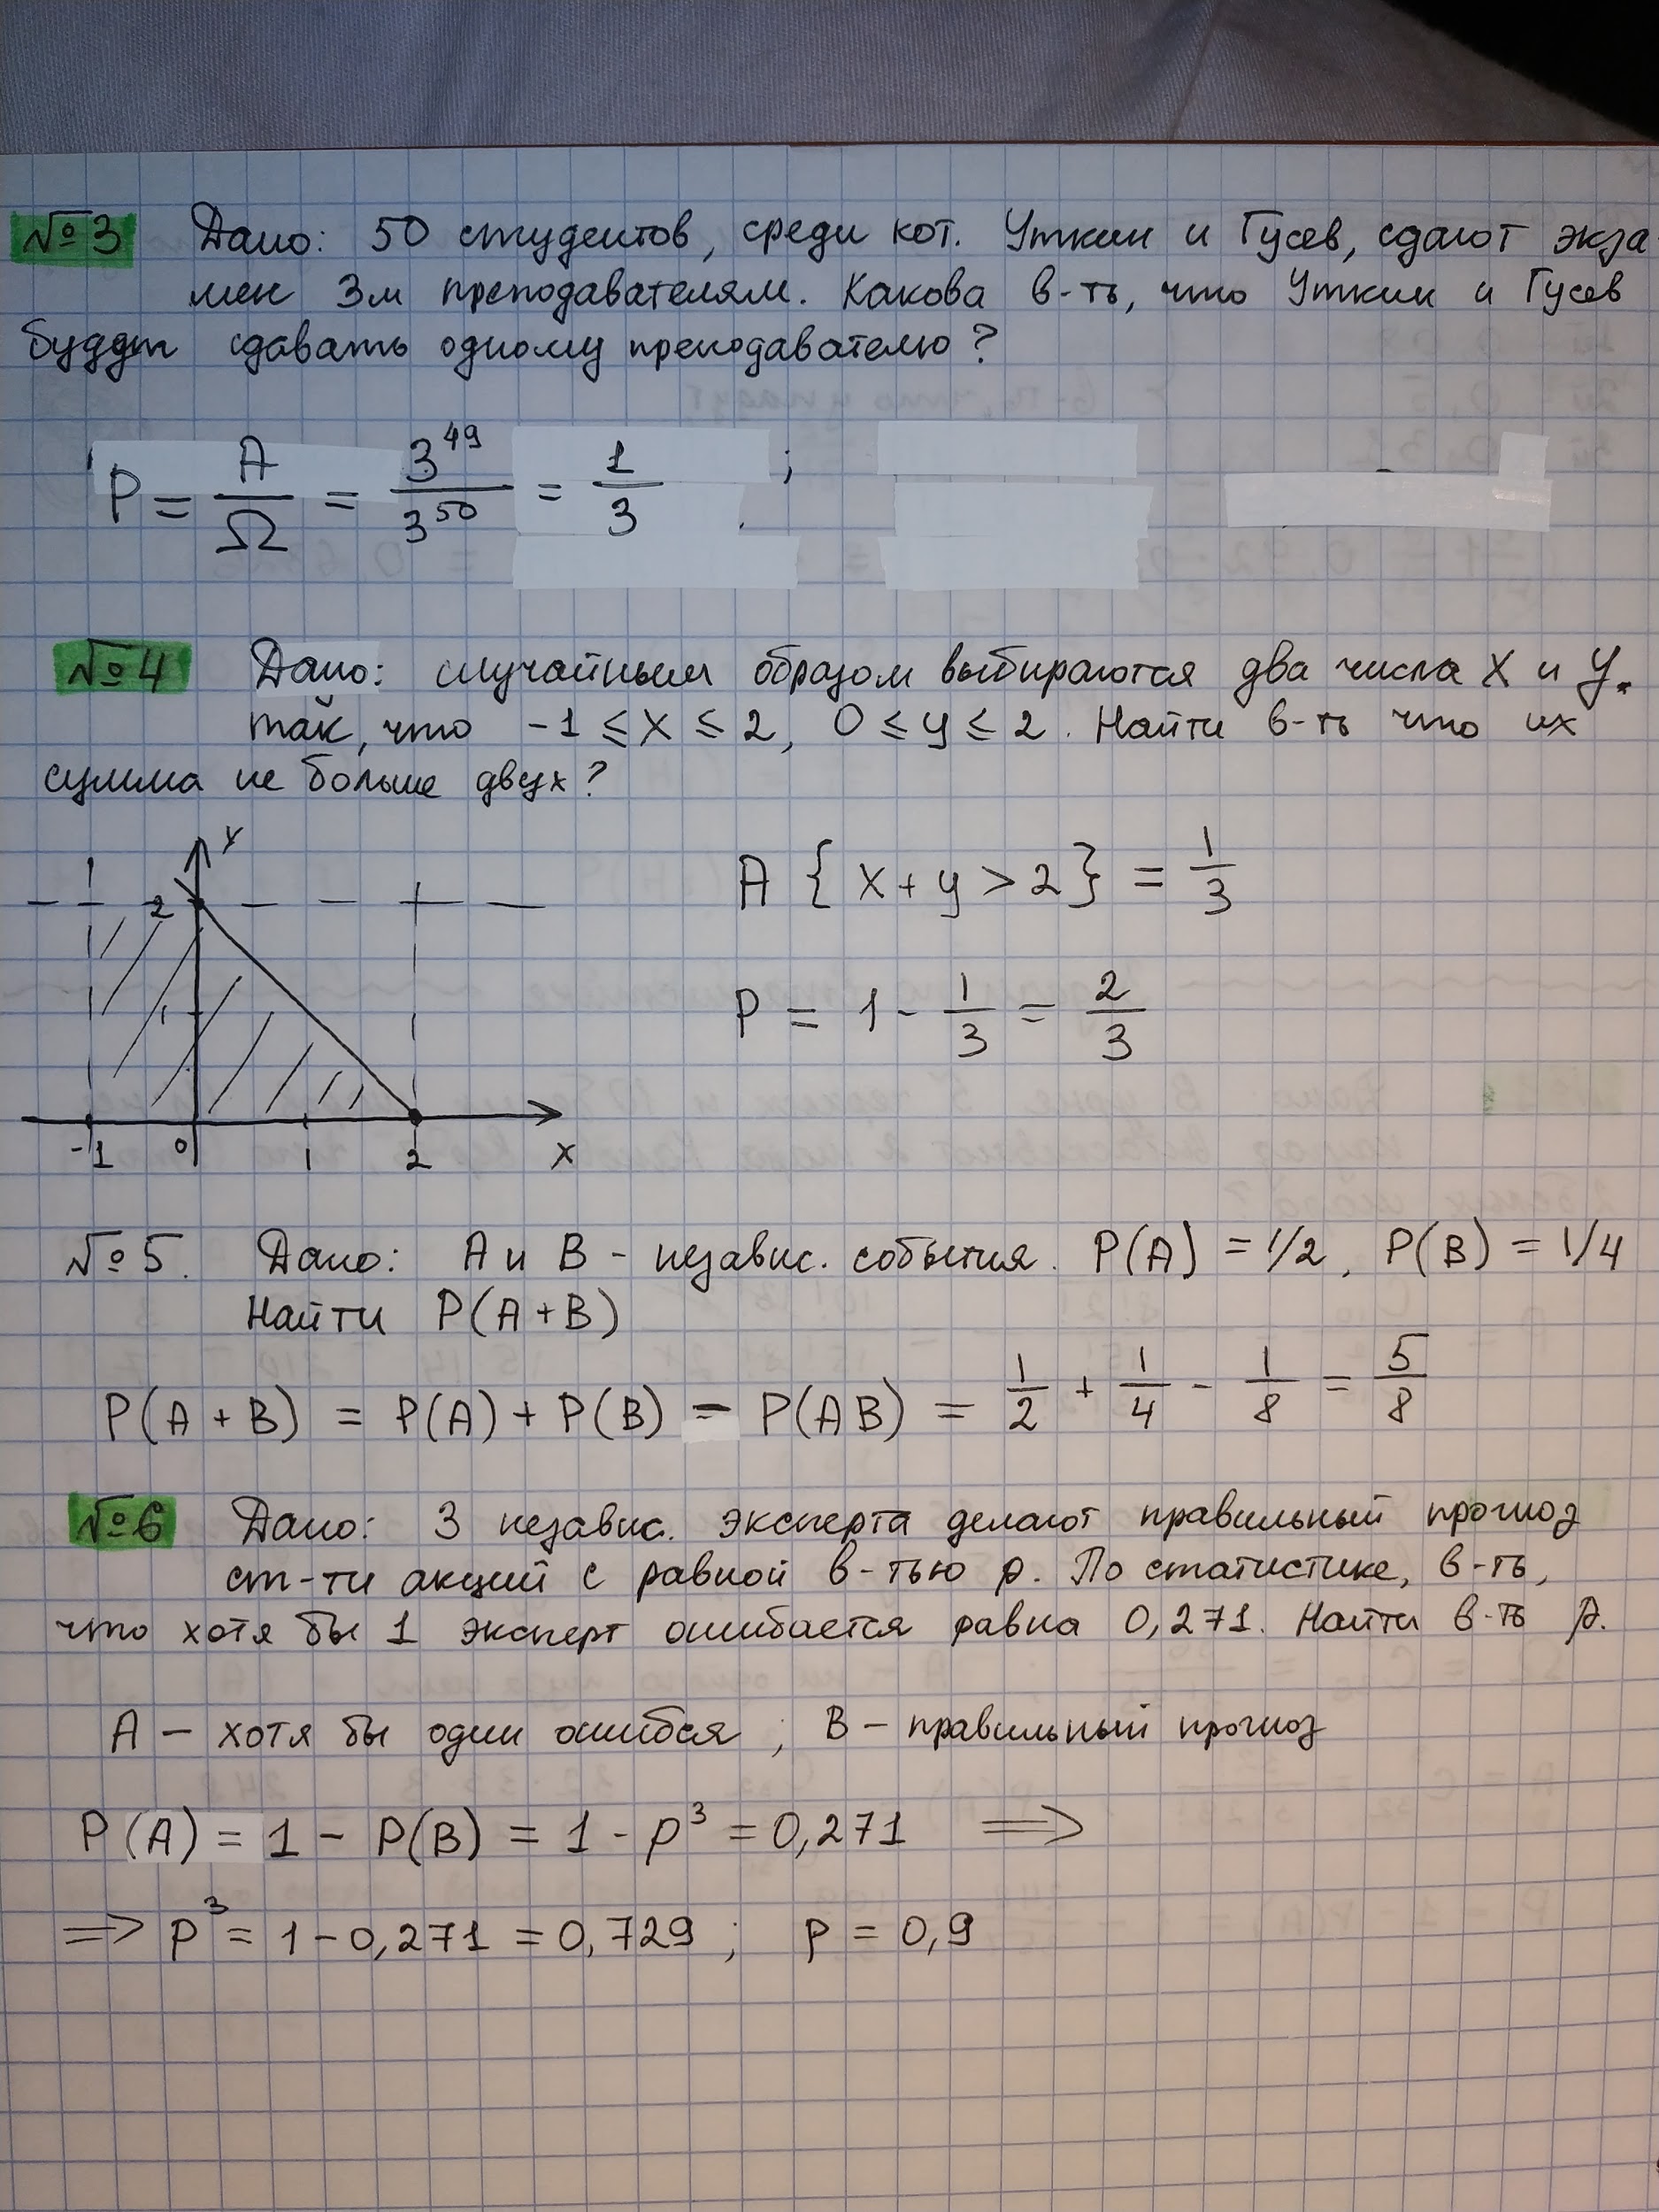 №3 Дано: 50 студентов, среди кот. Уткин и Гусев, сдают экза
мен 3м преподавателям. Какова в-ть, что Уткин и Гусев
будут сдавать одному преподавателю?
P = A/Ω = 3^49/3^50 = 1/3 ;
№4 Дано: случайным образом выбираются два числа X и Y.
так, что -1 ≤ X ≤ 2, 0 ≤ y ≤ 2. Найти в-ть что их
сумма не больше двух?
A { X + y > 2 } = 1/3
P = 1 - 1/3 = 2/3
Y
2
1
-1 0 1 2 X
№5. Дано: A и B - независ. события. P(A) = 1/2, P(B) = 1/4
Найти P(A+B)
P(A+B) = P(A) + P(B) - P(AB) = 1/2 + 1/4 - 1/8 = 5/8
№6 Дано: 3 независ. эксперта делают правильный прогноз
ст-ти акций с равной в-тью p. По статистике, в-ть,
что хотя бы 1 эксперт ошибается равна 0,271. Найти в-ть p.
A – хотя бы один ошибся ; B – правильный прогноз
P(A) = 1 - P(B) = 1 - p^3 = 0,271 ⟹
⟹ p^3 = 1 - 0,271 = 0,729 ; p = 0,9